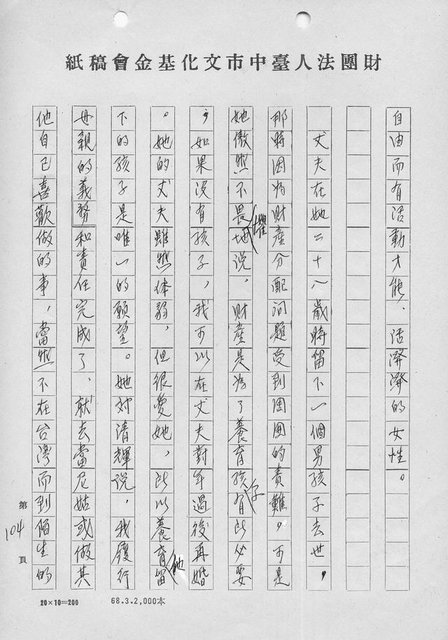 財團法人臺中市文化基金會稿紙
自由而有活動才能、活潑潑的女性。
丈夫在她二十八歲時留下一個男孩子去世，
那時因為財產分配問題受到的責難。可是
她傲然不畏懼地說，財產是為了養育孩子有此必要
，如果沒有孩子，我可以在丈夫對年過後再婚
。她的丈夫雖然体弱，但很愛她，所以養育他留
下的孩子是唯一的願望。她對清輝說，我履行
母親的義務和責任完成了，就去當尼姑或做其
他自己喜歡做的事，當然不在台灣而到陌生的
第104頁
20×10=200
68.3.2,000本